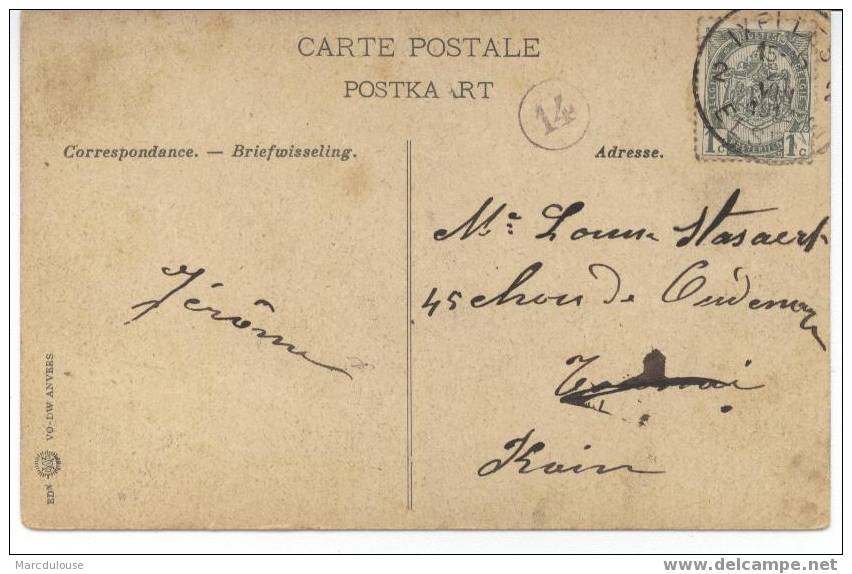 CARTE POSTALE
POSTKAART
14
Correspondance. — Briefwisseling.
Adresse.
1c
1c
Mr Louis Stasaert
45 Chau de Oudenarde
Jérôme
Tournai
Kain
EDN VO-DW ANVERS
Marcdulouse
delcampe.net